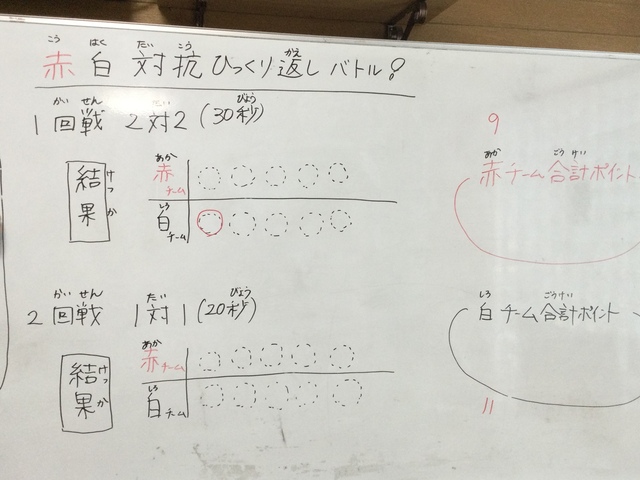 こう はく たい こう かえ
赤白対抗ひっくり返しバトル!
かい せん たい びょう
1回戦 2対2 (30秒)
けっか
結果
あか
赤チーム
しろ
白チーム
かい せん たい びょう
2回戦 1対1 (20秒)
けっか
結果
あか
赤チーム
しろ
白チーム
9
あか ごう けい
赤チーム合計ポイント
しろ ごうけい
白チーム合計ポイント
11